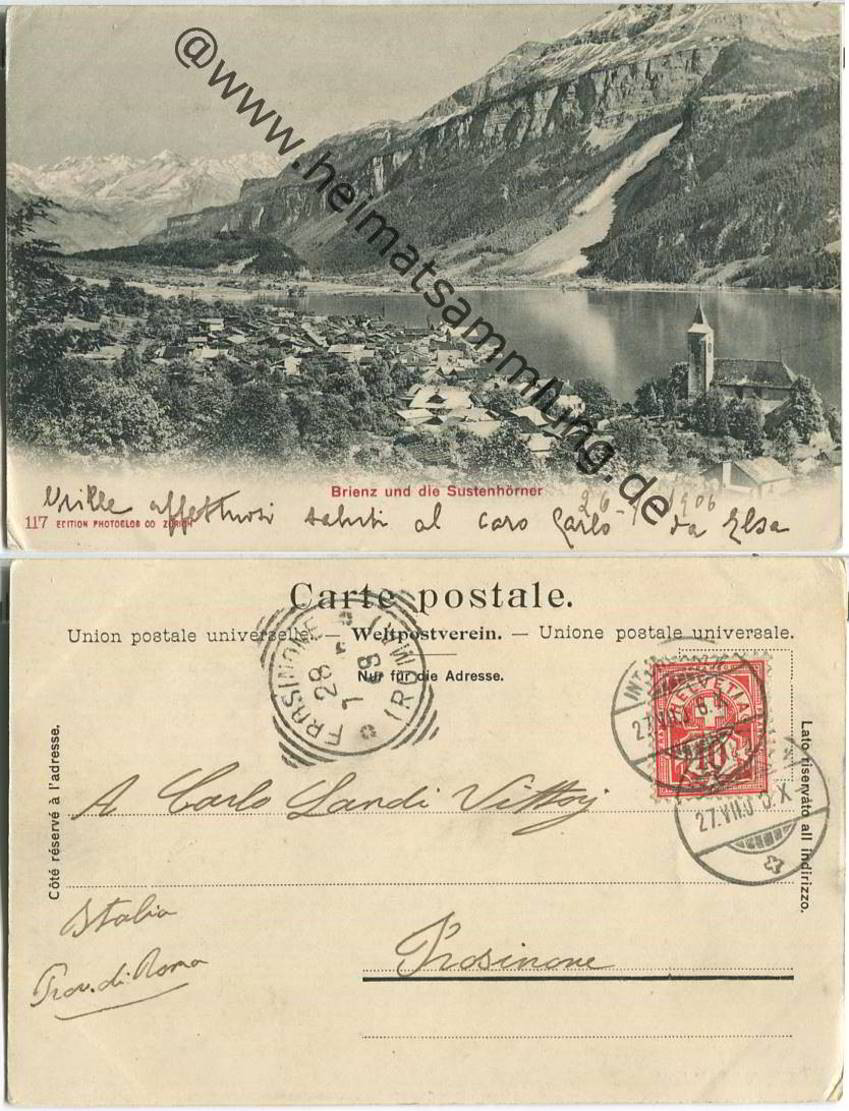 @www.heimatsammlung.de
Brienz und die Sustenhörner
26-7-1906
Mille affettuosi saluti al caro Carlo da Elsa
117 EDITION PHOTOGLOB CO ZÜRICH
Carte postale.
Union postale universelle. — Weltpostverein. — Unione postale universale.
Nur für die Adresse.
FROSINONE
28
7
(ROMA)
HELVETIA
10
INT
27.VII.0
27.VII.0
Côté réservé à l'adresse.
Lato riservato all indirizzo.
A Carlo Landi Vittorj
Italia
Prov. di Roma
Frosinone